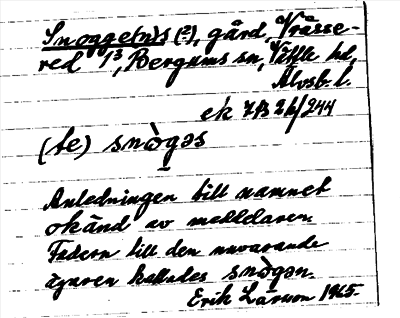 Snogge(n)s (?), gård, Vrässe-
red 1³, Bergums sn, Vättle hd,
Älvsb. l.
ek 7B 2b/244
(te) snògəs
Anledningen till namnet
okänd av meddelaren.
Fadern till den nuvarande
ägaren kallades snògən.
Erik Larsson 1965.